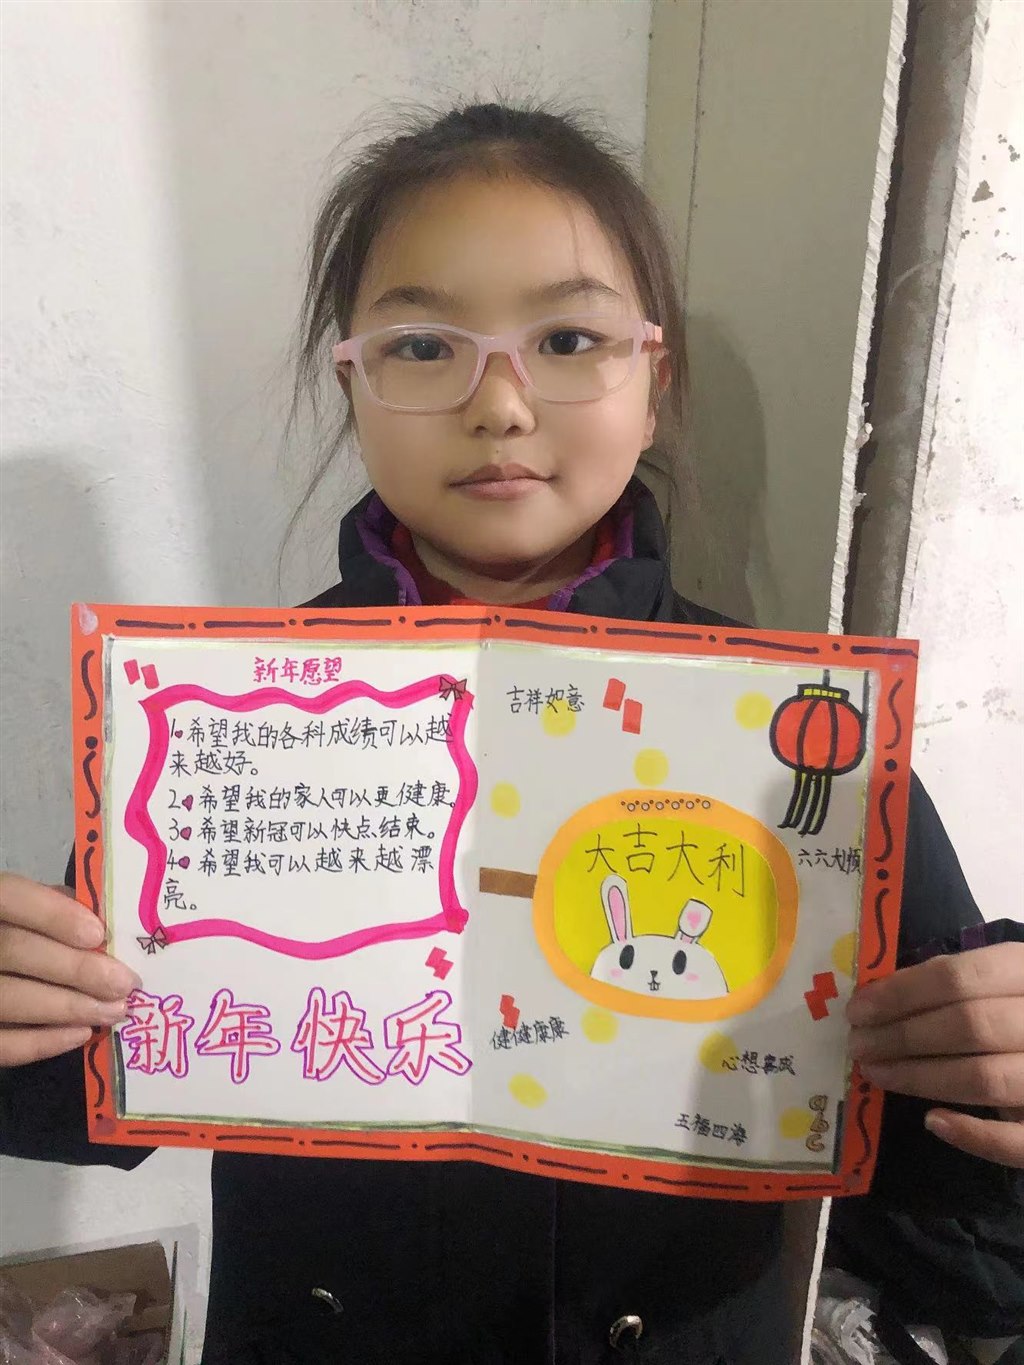 新年愿望
1.希望我的各科成绩可以越
来越好。
2.希望我的家人可以更健康。
3.希望新冠可以快点结束。
4.希望我可以越来越漂
亮。
新年快乐
吉祥如意
大吉大利
六六大顺
健健康康
心想事成
五福四海